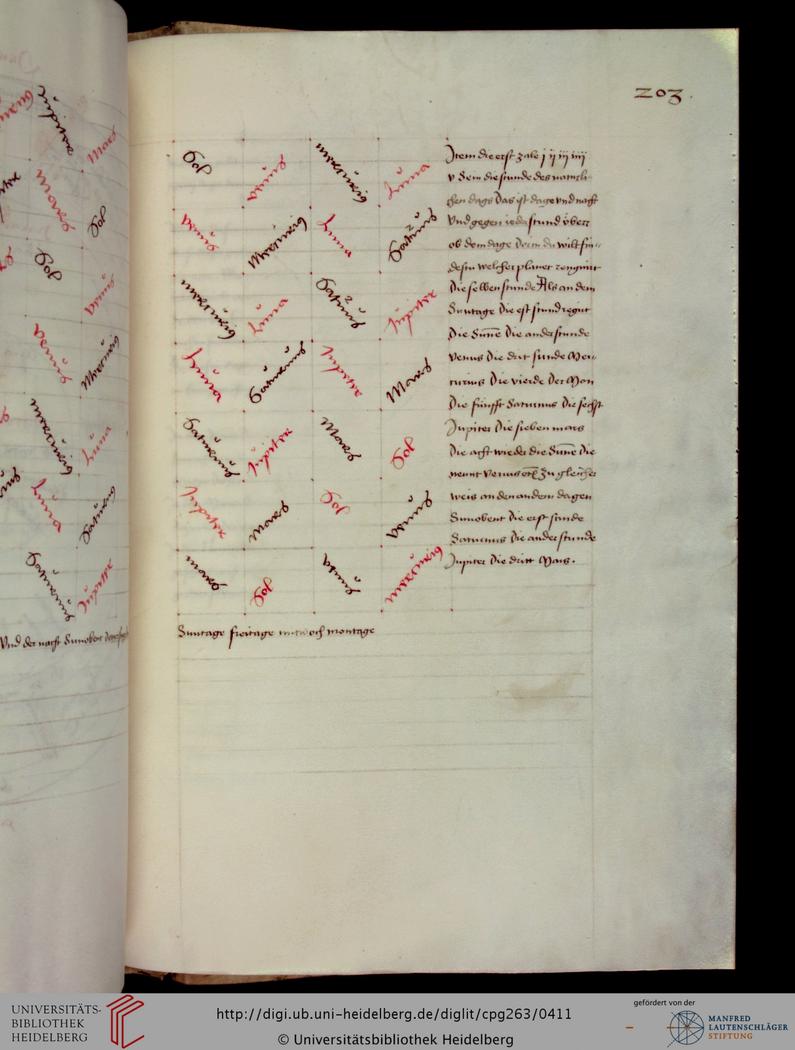 203
Sol Venus mercurius Luna
Venus Mercurius Luna Saturnus
mercurius Luna Saturnus Jupiter
Luna Saturnus Jupiter Mars
Saturnus Jupiter Mars Sol
Jupiter Mars Sol Venus
mars Sol Venus mercurius
Suntage freitage mitwoch montage
Item die erst zale j ij iij iiij
v dem die stunde des naturli-
chen dags Das ist dage vnd nacht
Vnd gegen ieder stund vberr
ob dem dage dorin du wilt fin-
destu welcher planet regnirt
Die selben stunde Als an dem
Suntage Die erst stund regirt
Die Sunne Die ander stunde
Venus Die drit stunde Mer-
curius Die vierde Der Mon
Die fünfft Saturnus Die sechst
Jupiter Die sieben mars
Die acht wieder die Sunne Die
neunt Venus etc Zu gleicher
weis an den andern dagen
Sunobent Die erst stunde
Saturnus Die ander stunde
Jupiter Die dritt Mars.
Mars
Sol
Venus
Mercurius
Luna
Saturnus
Jupiter
Vnd der nacht Sunobent
UNIVERSITÄTS-
BIBLIOTHEK
HEIDELBERG
http://digi.ub.uni-heidelberg.de/diglit/cpg263/0411
© Universitätsbibliothek Heidelberg
gefördert von der
MANFRED
LAUTENSCHLÄGER
STIFTUNG